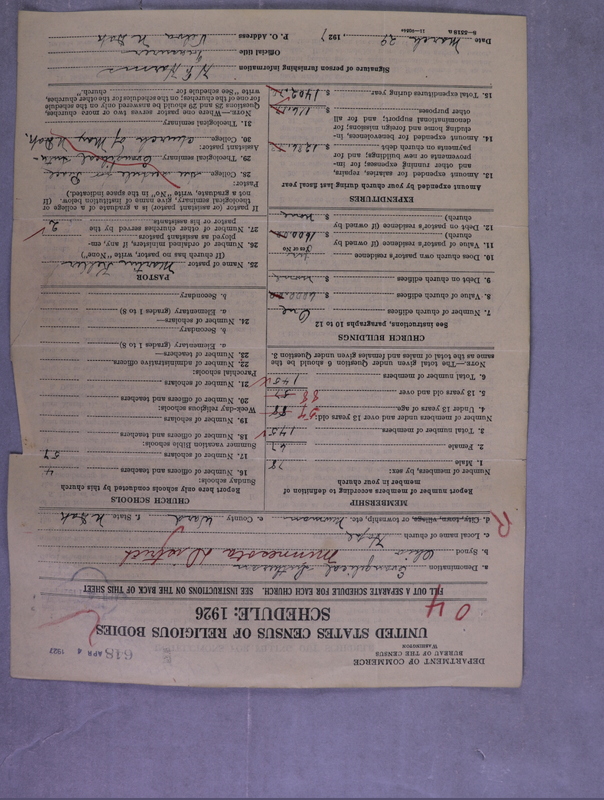 DEPARTMENT OF COMMERCE
BUREAU OF THE CENSUS
WASHINGTON
618 APR 4 1927
UNITED STATES CENSUS OF RELIGIOUS BODIES
SCHEDULE: 1926
04
FILL OUT A SEPARATE SCHEDULE FOR EACH CHURCH. SEE INSTRUCTIONS ON THE BACK OF THIS SHEET
a. Denomination Evangelical Lutheran
b. Synod Ohio Minnesota District
c. Local name of church Hope
d. City, town, village, or township, etc. Newman e. County Ward f. State N. Dak
R
MEMBERSHIP
Report number of members according to definition of member in your church
Number of members, by sex:
1. Male 78
2. Female 67
3. Total number of members 145
Number of members under and over 13 years old:
4. Under 13 years of age 57 88
5. 13 years old and over 88 57
6. Total number of members 145
NOTE.—The total given under Question 6 should be the same as the total of males and females given under Question 3.
CHURCH BUILDINGS
See instructions, paragraphs 10 to 12
7. Number of church edifices One
8. Value of church edifices $ 6000.00
9. Debt on church edifices $ none
10. Does church own pastor's residence yes
Yes or No
11. Value of pastor's residence (if owned by church) $ 1600.00
12. Debt on pastor's residence (if owned by church) $ none
EXPENDITURES
Amount expended by your church during last fiscal year
13. Amount expended for salaries, repairs, and other running expenses; for improvements or new buildings; and for payments on church debt $
14. Amount expended for benevolences, including home and foreign missions; for denominational support; and for all other purposes $
15. Total expenditures during year $
CHURCH SCHOOLS
Report here only schools conducted by this church
Sunday schools:
16. Number of officers and teachers 4
17. Number of scholars 59
Summer vacation Bible schools:
18. Number of officers and teachers
19. Number of scholars
Week-day religious schools:
20. Number of officers and teachers
21. Number of scholars
Parochial schools:
22. Number of administrative officers
23. Number of teachers—
a. Elementary (grades 1 to 8)
b. Secondary
24. Number of scholars—
a. Elementary (grades 1 to 8)
b. Secondary
PASTOR
25. Name of pastor Martin
(If church has no pastor, write "None")
26. Number of ordained ministers, if any, employed as assistant pastors
27. Number of other churches served by the pastor or his assistants 2
If pastor (or assistant pastor) is a graduate of a college or theological seminary, give name of institution below. (If not a graduate, write "No", in the space indicated.)
Pastor:
28. College
29. Theological seminary
Assistant pastor:
30. College
31. Theological seminary
NOTE.—Where one pastor serves two or more churches, Questions 28 and 29 should be answered only on the schedule for one of the churches; on the schedule for the other churches, write "See schedule for church."
Signature of person furnishing information
Official title
P. O. Address N Dak
Date March 29, 1927
8-5318a